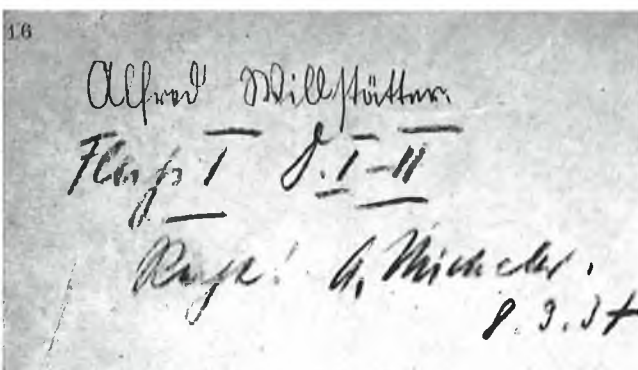 16
Alfred Willstätter.
Fleiß I J. I-II
A. Michel
8.3.37